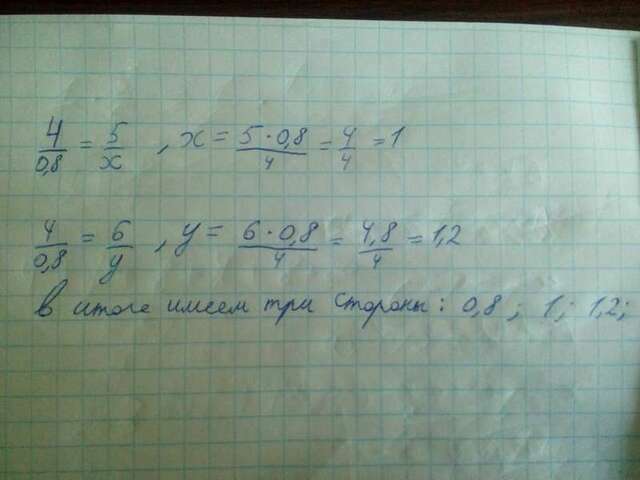 4/0,8 = 5/x , x = 5·0,8/4 = 4/4 = 1
4/0,8 = 6/y , y = 6·0,8/4 = 4,8/4 = 1,2
в итоге имеем три стороны: 0,8; 1; 1,2;